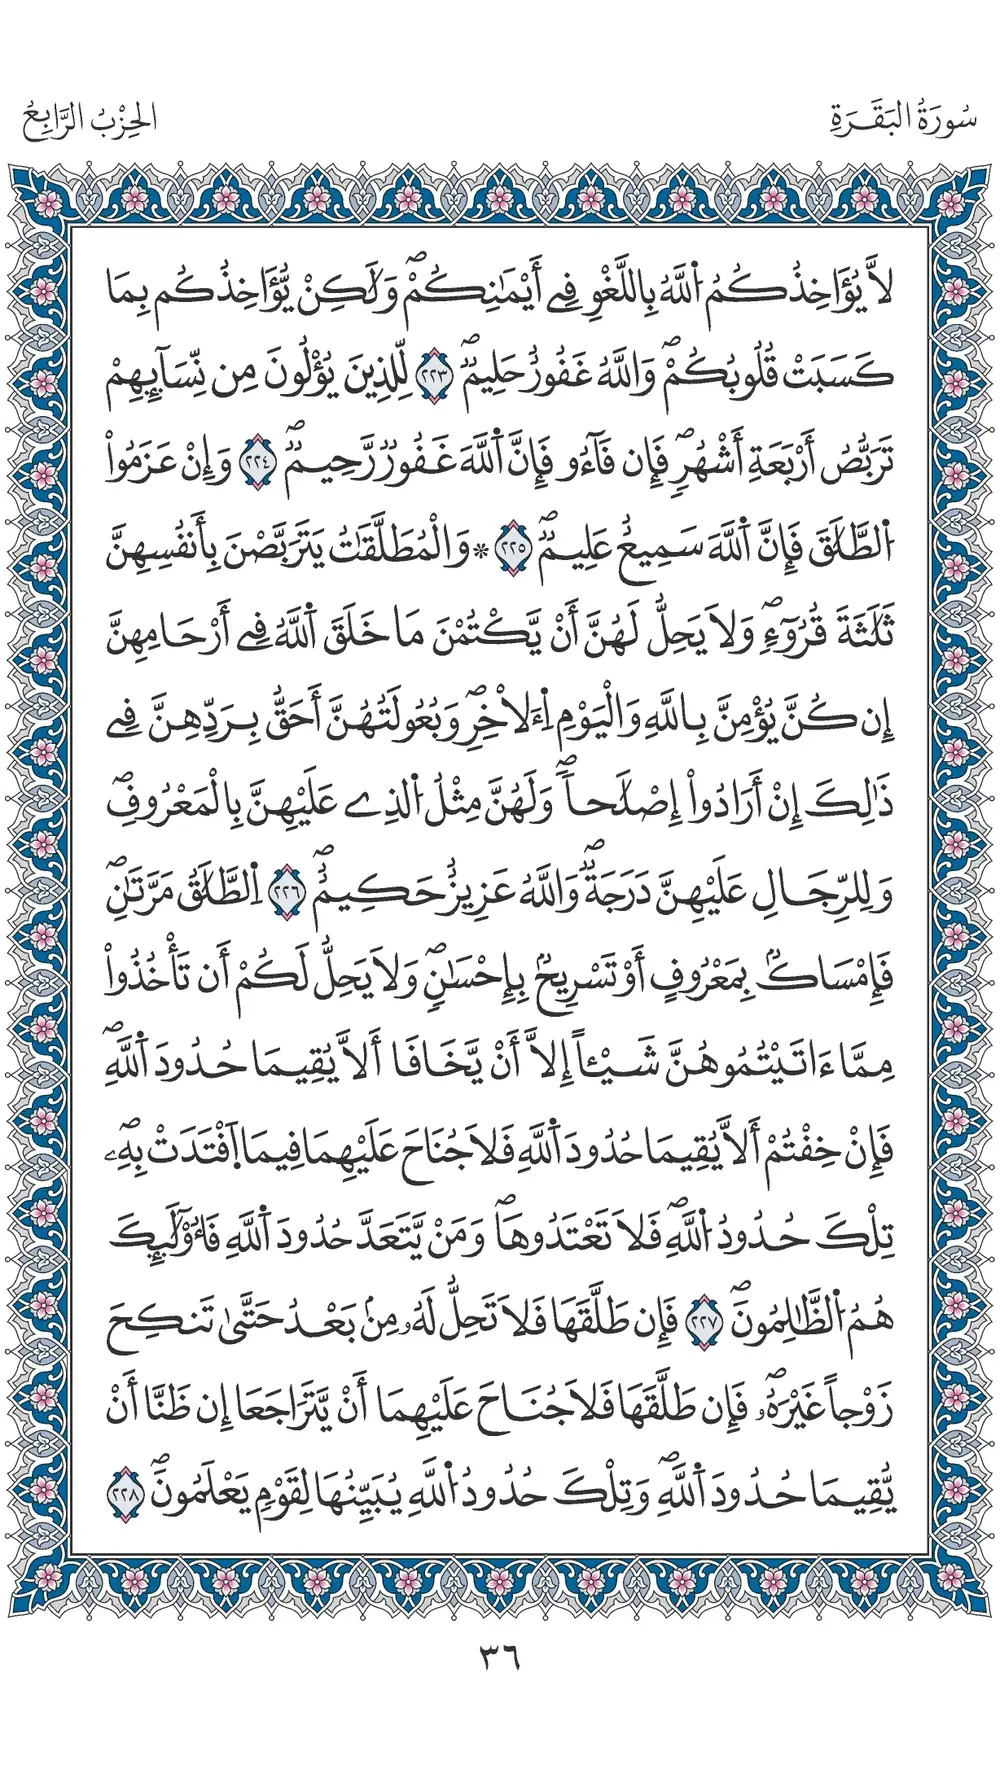 سُورَةُ البَقَرَةِ
الحِزْبُ الرَّابِعُ
لاَّ يُؤَاخِذُكُمُ اُ۬للَّهُ بِاللَّغْوِ فِےٓ أَيْمَٰنِكُمْۖ وَلَٰكِنْ يُّؤَاخِذُكُم بِمَا
كَسَبَتْ قُلُوبُكُمْۖ وَاللَّهُ غَفُورٌ حَلِيمٞۖ ٢٢٣ لِّلذِينَ يُؤْلُونَ مِن نِّسَآئِهِمْ
تَرَبُّصُ أَرْبَعَةِ أَشْهُرٖۖ فَإِن فَآءُو فَإِنَّ اَ۬للَّهَ غَفُورٞ رَّحِيمٞۖ ٢٢٤ وَإِنْ عَزَمُواْ
اُ۬لطَّلَٰقَ فَإِنَّ اَ۬للَّهَ سَمِيعٌ عَلِيمٞۖ ٢٢٥ * وَالْمُطَلَّقَٰتُ يَتَرَبَّصْنَ بِأَنفُسِهِنَّ
ثَلَٰثَةَ قُرُوٓءٖۖ وَلاَ يَحِلُّ لَهُنَّ أَنْ يَّكْتُمْنَ مَا خَلَقَ اَ۬للَّهُ فِےٓ أَرْحَامِهِنَّ
إِن كُنَّ يُؤْمِنَّ بِاللَّهِ وَالْيَوْمِ اِ۬ءَلاْخِرِۖ وَبُعُولَتُهُنَّ أَحَقُّ بِرَدِّهِنَّ فِے
ذَٰلِكَ إِنْ أَرَادُوٓاْ إِصْلَٰحاٗۖ وَلَهُنَّ مِثْلُ اُ۬لذِے عَلَيْهِنَّ بِالْمَعْرُوفِۖ
وَلِلرِّجَالِ عَلَيْهِنَّ دَرَجَةٞۖ وَاللَّهُ عَزِيزٌ حَكِيمٞۖ ٢٢٦ اِ۬لطَّلَٰقُ مَرَّتَٰنِۖ
فَإِمْسَاكُۢ بِمَعْرُوفٍ أَوْ تَسْرِيحُۢ بِإِحْسَٰنٖۖ وَلاَ يَحِلُّ لَكُمْ أَن تَأْخُذُواْ
مِمَّآ ءَاتَيْتُمُوهُنَّ شَيْـٔاً إِلآَّ أَنْ يَّخَافَآ أَلاَّ يُقِيمَا حُدُودَ اَ۬للَّهِۖ
فَإِنْ خِفْتُمُۥٓ أَلاَّ يُقِيمَا حُدُودَ اَ۬للَّهِ فَلاَ جُنَاحَ عَلَيْهِمَا فِيمَا اَ۪فْتَدَتْ بِهِۦۖ
تِلْكَ حُدُودُ اُ۬للَّهِ فَلاَ تَعْتَدُوهَاۖ وَمَنْ يَّتَعَدَّ حُدُودَ اَ۬للَّهِ فَأُوْلَٰٓئِكَ
هُمُ اُ۬لظَّٰلِمُونَۖ ٢٢٧ فَإِن طَلَّقَهَا فَلاَ تَحِلُّ لَهُۥ مِنۢ بَعْدُ حَتَّىٰ تَنكِحَ
زَوْجاً غَيْرَهُۥۖ فَإِن طَلَّقَهَا فَلاَ جُنَاحَ عَلَيْهِمَآ أَنْ يَّتَرَاجَعَآ إِن ظَنَّآ أَنْ
يُّقِيمَا حُدُودَ اَ۬للَّهِۖ وَتِلْكَ حُدُودُ اُ۬للَّهِ يُبَيِّنُهَا لِقَوْمٖ يَعْلَمُونَۖ ٢٢٨
٣٦